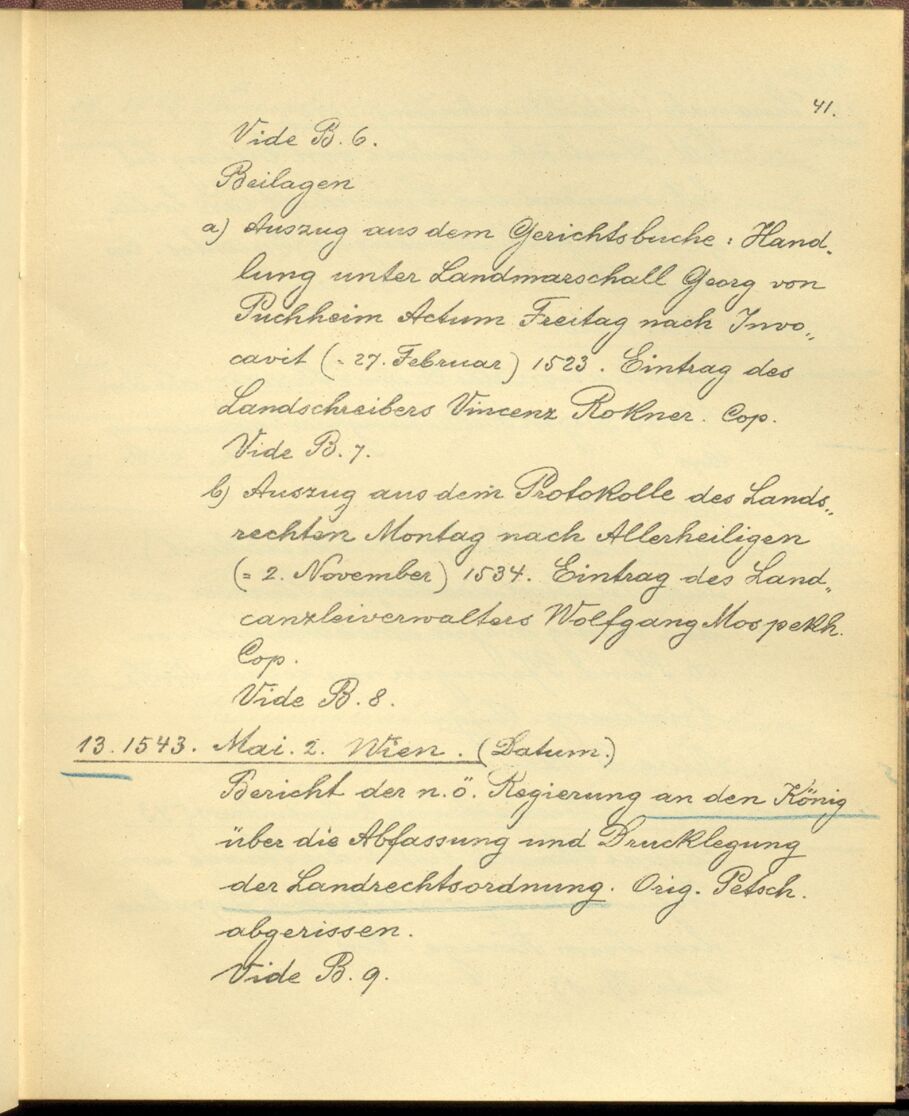 41.
Vide B. 6.
Beilagen
a) Auszug aus dem Gerichtsbuche: Hand„
lung unter Landmarschall Georg von
Puchheim Actum Freitag nach Invo„
cavit (= 27. Februar) 1523. Eintrag des
Landschreibers Vincenz Rokner. Cop.
Vide B. 7.
b) Auszug aus dem Protokolle des Lands„
rechten Montag nach Allerheiligen
(= 2. November) 1534. Eintrag des Land„
canzleiverwalters Wolfgang Mospekh.
Cop.
Vide B. 8.
13. 1543. Mai. 2. Wien. (Datum.)
Bericht der n. ö. Regierung an den König
über die Abfassung und Drucklegung
der Landrechtsordnung. Orig. Petsch.
abgerissen.
Vide B. 9.